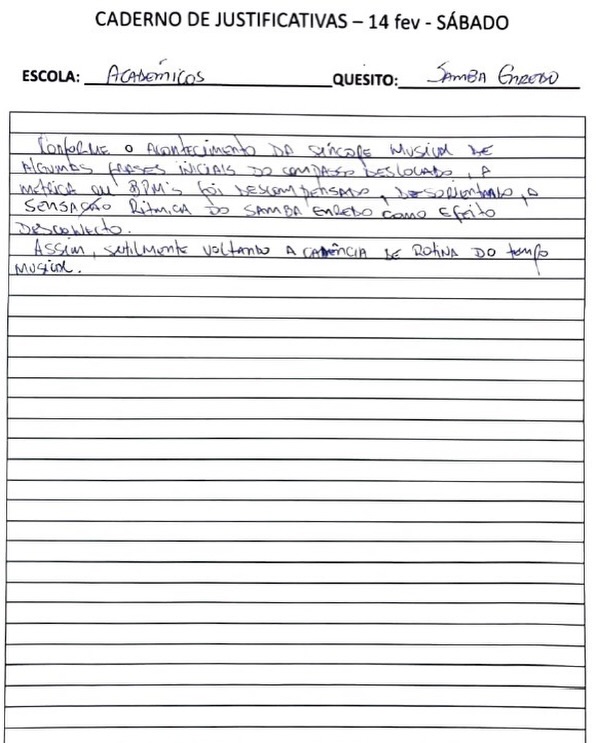 CADERNO DE JUSTIFICATIVAS – 14 fev - SÁBADO
ESCOLA: ACADÊMICOS QUESITO: SAMBA ENREDO
CONFORME O ACONTECIMENTO DA SÍNCOPE MUSICAL DE
ALGUMAS FRASES INICIAIS DO COMPASSO DESLOCADO, A
MÉTRICA OU BPM'S FOI DESCOMPENSADO, DESORIENTANDO, A
SENSAÇÃO RÍTMICA DO SAMBA ENREDO COMO EFEITO
DESCONECTO.
ASSIM, SUTILMENTE VOLTANDO A CADÊNCIA DE ROTINA DO TEMPO
MUSICAL.